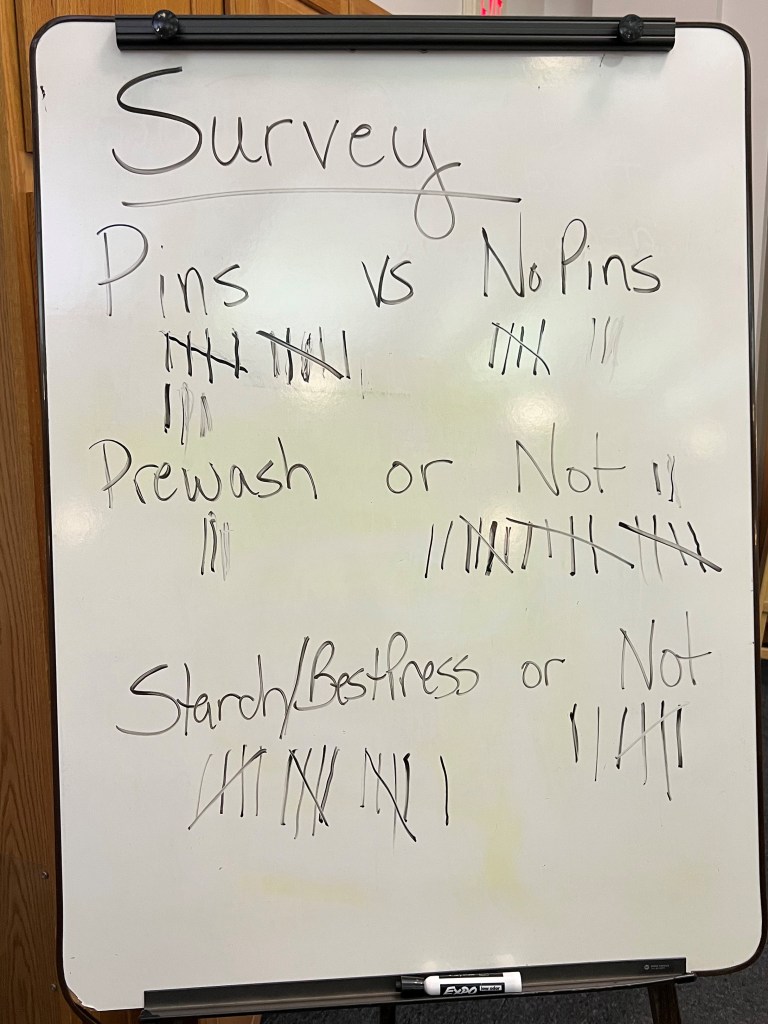 Survey
Pins vs No Pins
Prewash or Not
Starch/BestPress or Not
EXPO